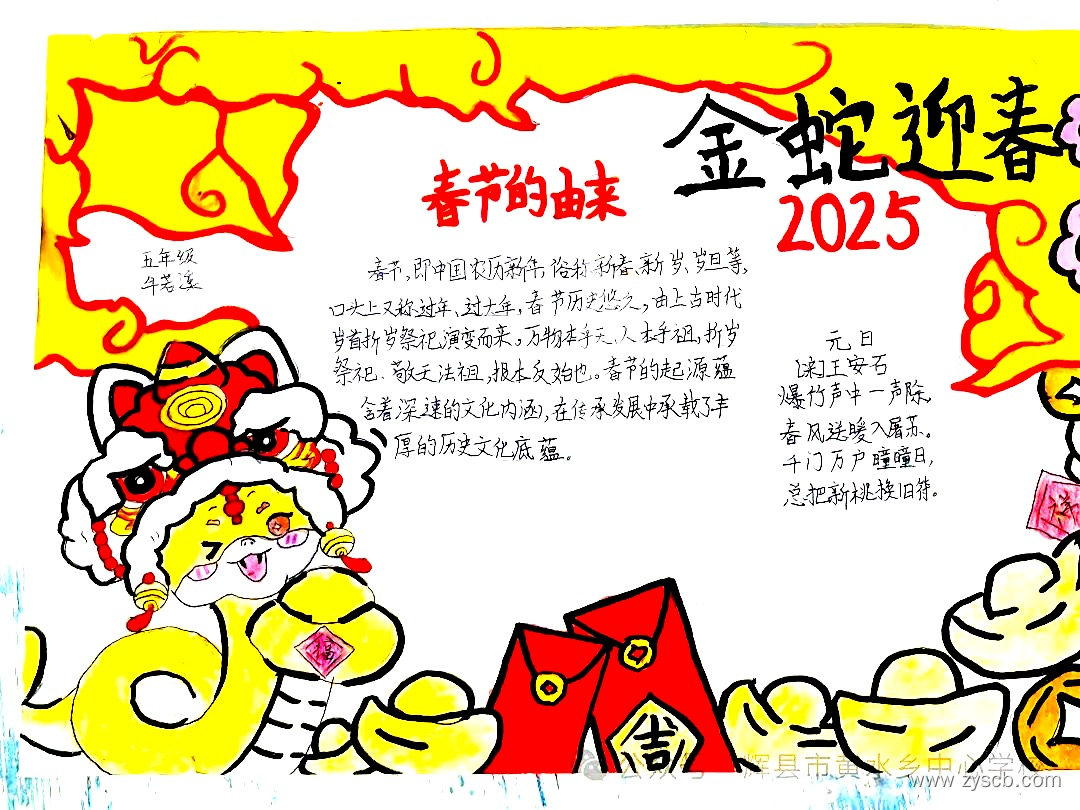 金蛇迎春
2025
春节的由来
五年级
牛若溪
春节,即中国农历新年,俗称新春、新岁、岁旦等,
口头上又称过年、过大年,春节历史悠久,由上古时代
岁首祈岁祭祀演变而来。万物本乎天、人本乎祖,祈岁
祭祀、敬天法祖,报本反始也。春节的起源蕴
含着深邃的文化内涵,在传承发展中承载了丰
厚的历史文化底蕴。
元日
[宋]王安石
爆竹声中一声除,
春风送暖入屠苏。
千门万户瞳瞳日,
总把新桃换旧符。
福
福
吉
公众号·辉县市黄水乡中心学校
www.zyscb.com